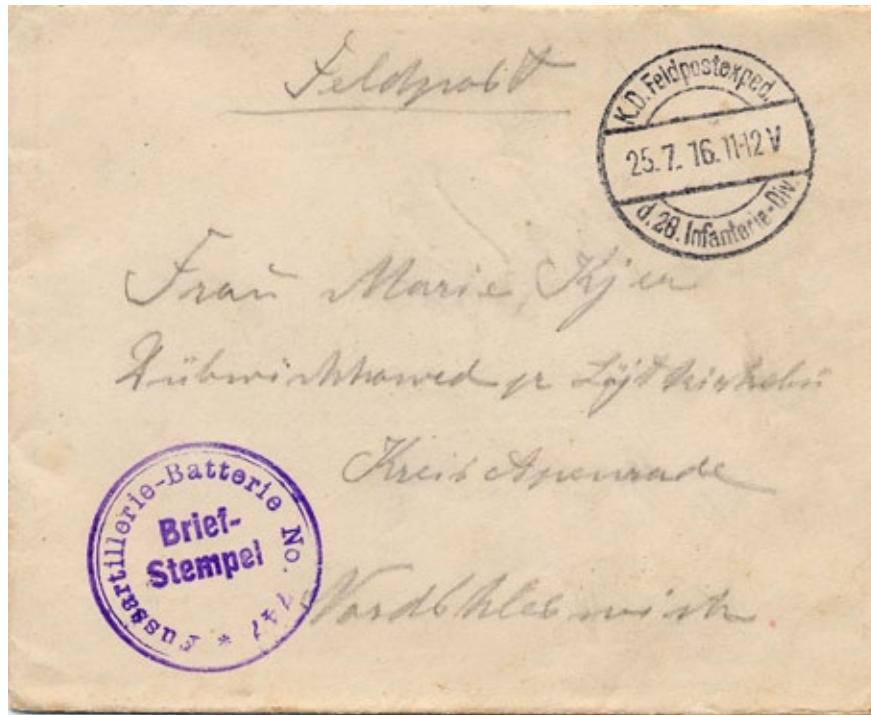 Feldpost
K.D. Feldpostexped.
25.7.16. 11-12 V
d. 28. Infanterie-Div.
Frau Marie Kjer
pr Löjtkirkeby
Kreis Apenrade
Nordschleswich
Fussartillerie-Batterie No. 747 *
Brief-
Stempel